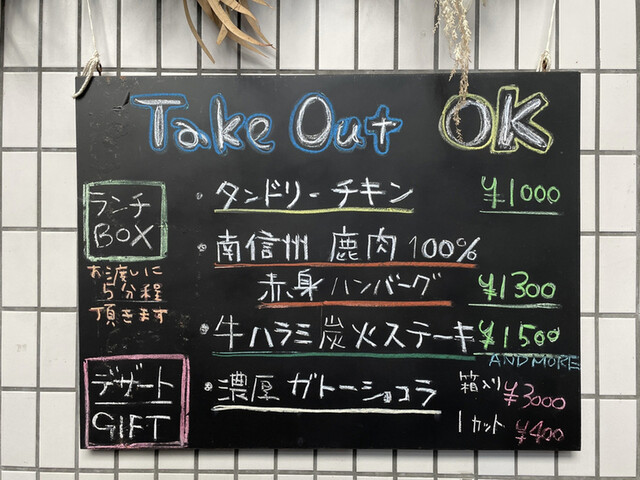 Take Out OK
ランチ
BOX
お渡しに
5分程
頂きます
・タンドリーチキン ¥1000
・南信州 鹿肉100%
赤身ハンバーグ ¥1300
・牛ハラミ炭火ステーキ ¥1500
AND MORE
デザート
GIFT
・濃厚 ガトーショコラ
箱入り ¥3000
1カット ¥400